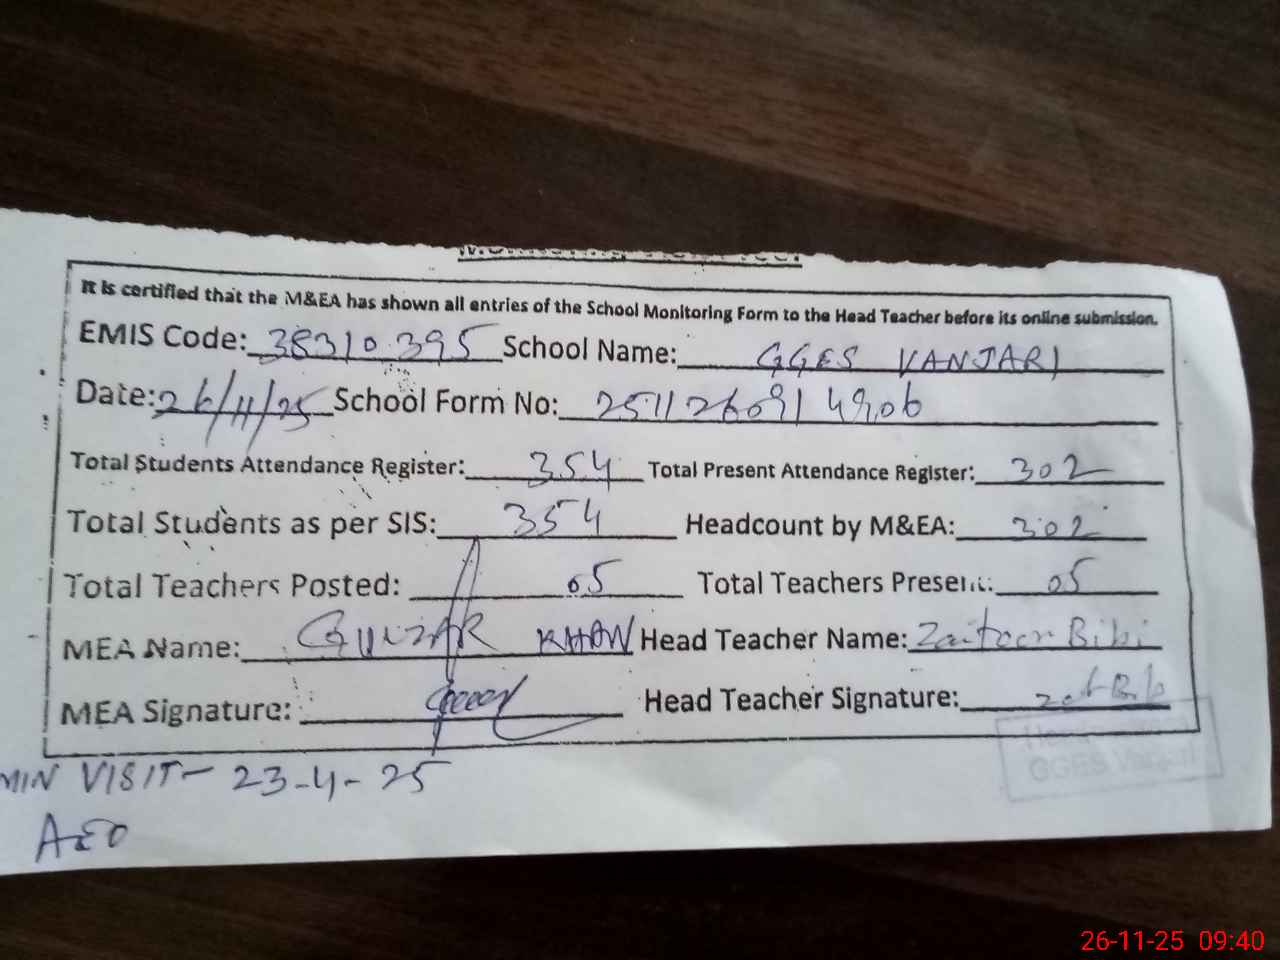 It is certified that the M&EA has shown all entries of the School Monitoring Form to the Head Teacher before its online submission.
EMIS Code: 38310395 School Name: GGES VANJARI
Date: 26/11/25 School Form No: 2511260914906
Total Students Attendance Register: 354 Total Present Attendance Register: 302
Total Students as per SIS: 354 Headcount by M&EA: 302
Total Teachers Posted: 05 Total Teachers Present: 05
MEA Name: GULZAR KHAN Head Teacher Name: Zaitoon Bibi
MEA Signature: Head Teacher Signature:
GGES Vanjari
MIN VISIT- 23-4-25
AEO
26-11-25 09:40